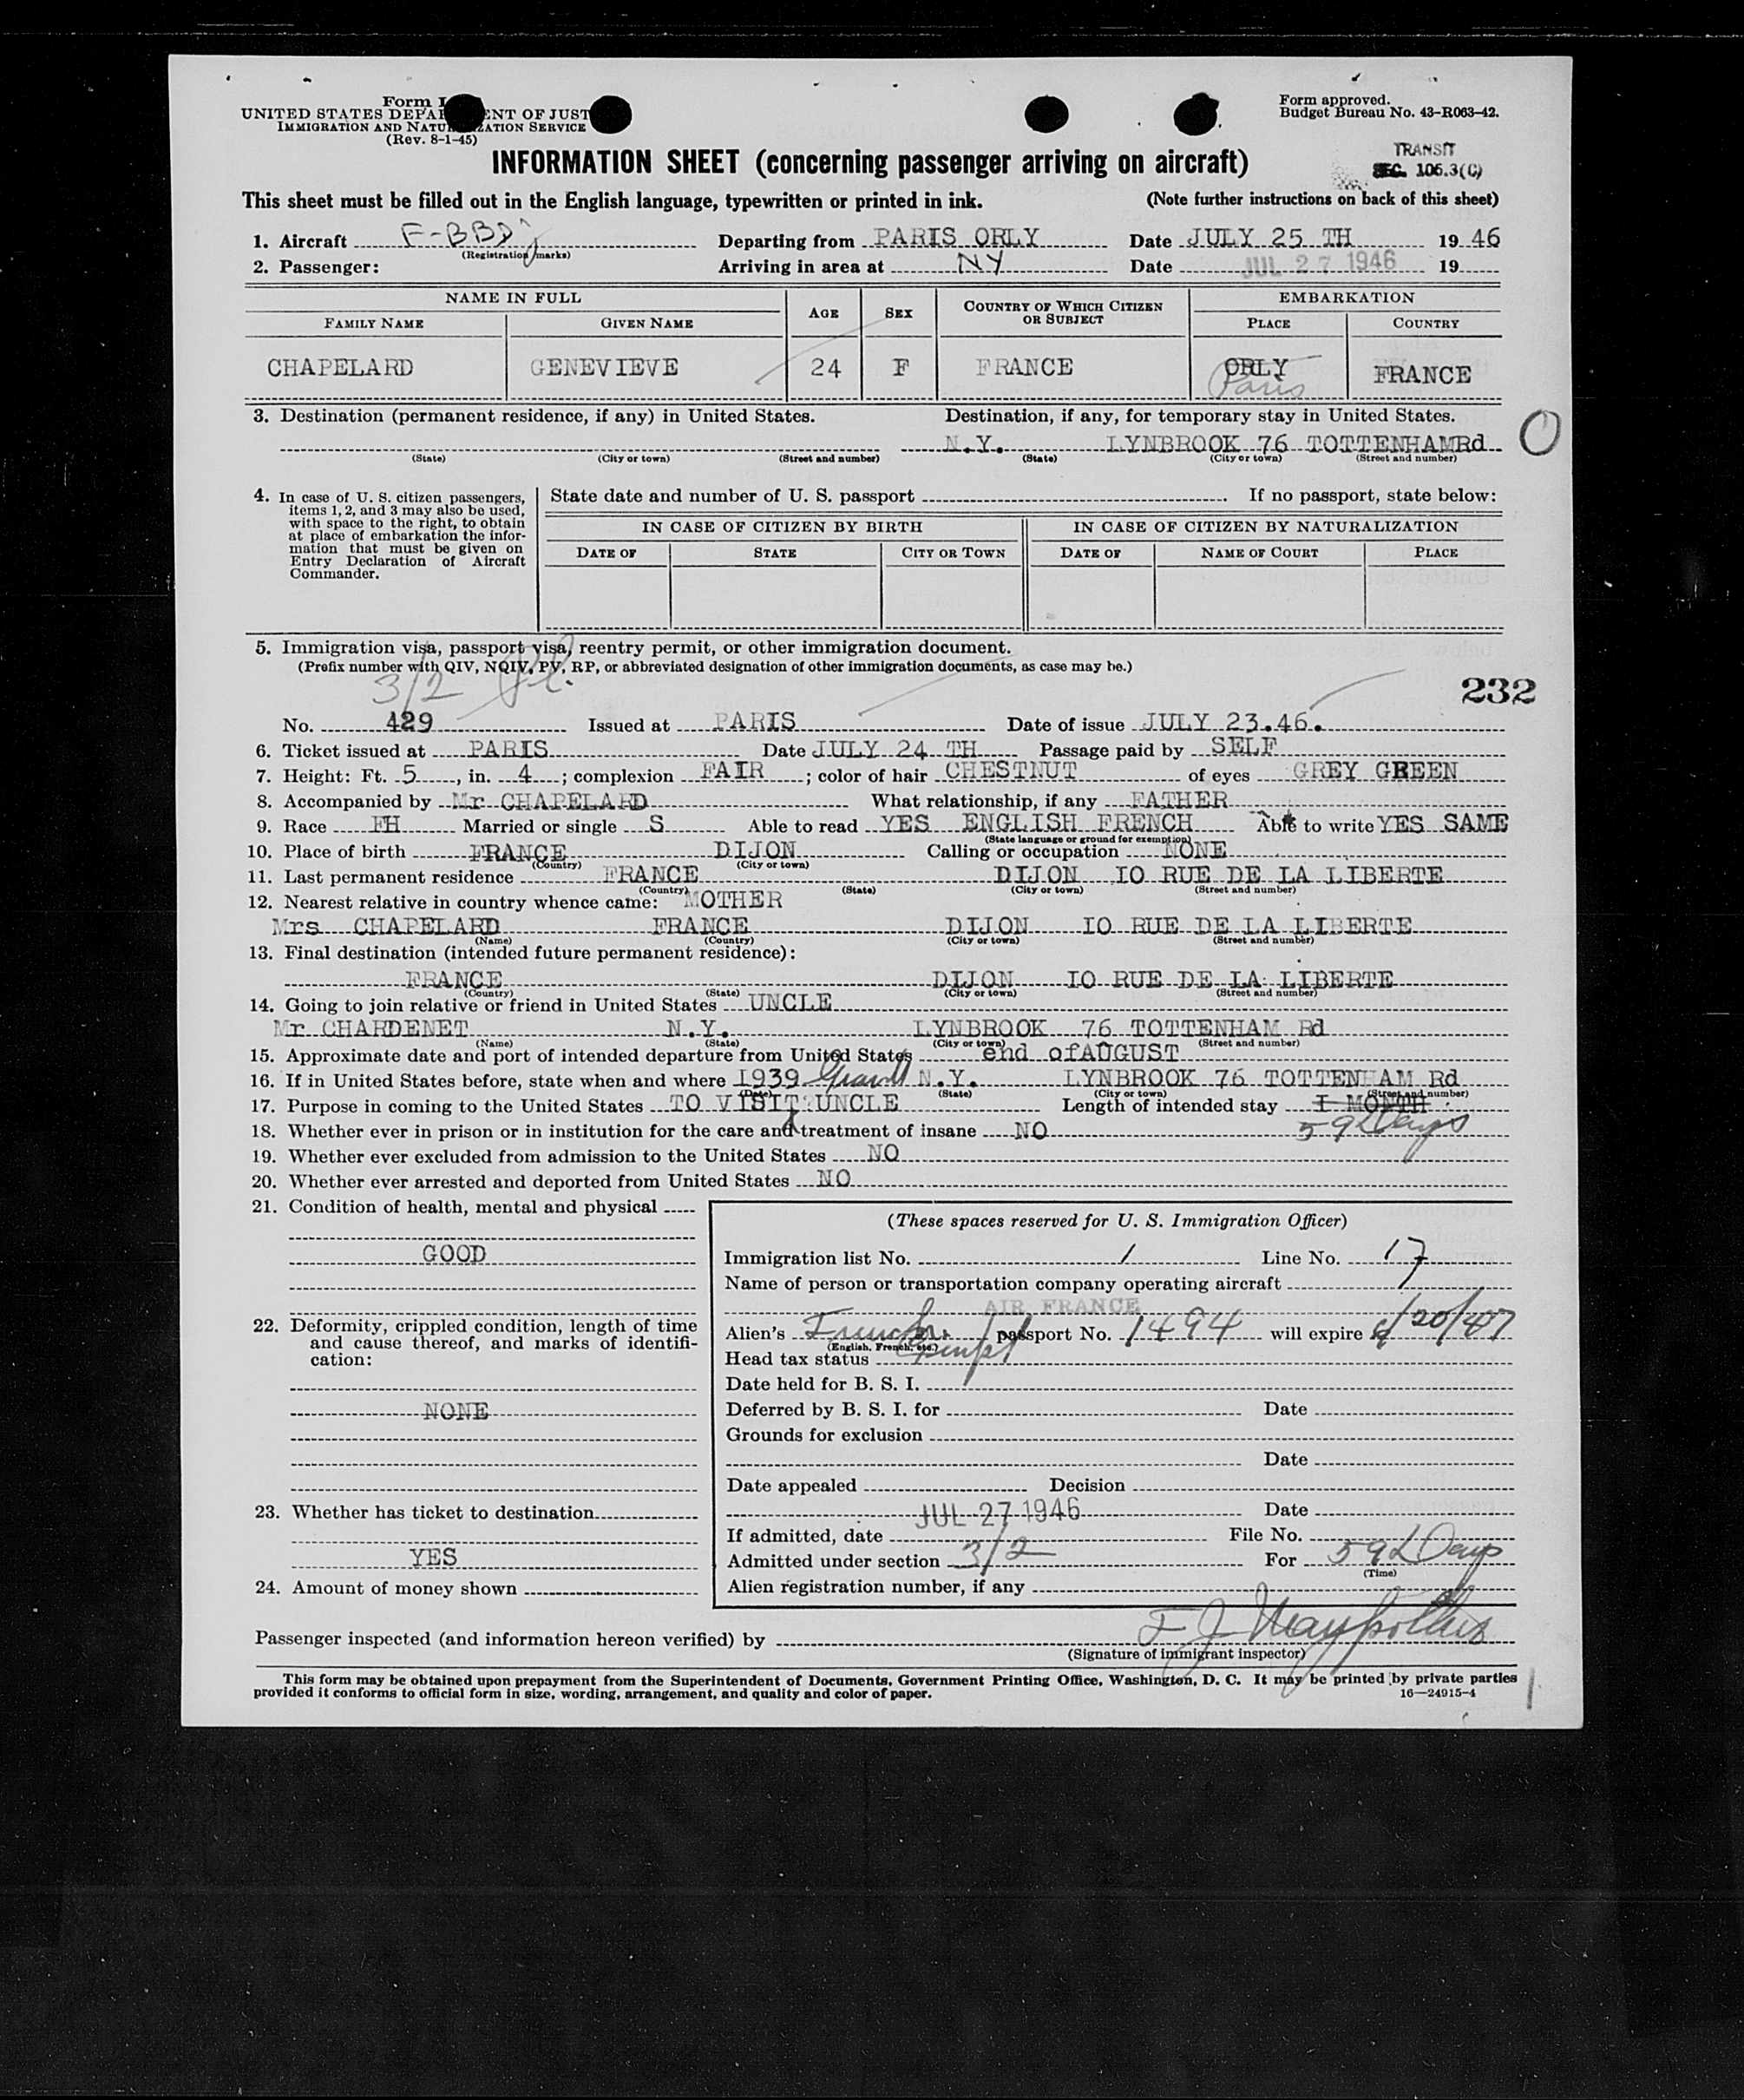 Form I
UNITED STATES DEPA ENT OF JUST
IMMIGRATION AND NATU ZATION SERVICE
(Rev. 8-1-45)
Form approved.
Budget Bureau No. 43-R063-42.
INFORMATION SHEET (concerning passenger arriving on aircraft)
TRANSIT
SEC. 106.3(C)
This sheet must be filled out in the English language, typewritten or printed in ink. (Note further instructions on back of this sheet)
1. Aircraft F-BBDj Departing from PARIS ORLY Date JULY 25 TH 19 46
(Registration marks)
2. Passenger: Arriving in area at NY Date JUL 27 1946 19
NAME IN FULL AGE SEX COUNTRY OF WHICH CITIZEN OR SUBJECT EMBARKATION
FAMILY NAME GIVEN NAME PLACE COUNTRY
CHAPELARD GENEVIEVE 24 F FRANCE ORLY FRANCE
Paris
3. Destination (permanent residence, if any) in United States. Destination, if any, for temporary stay in United States.
N.Y. LYNBROOK 76 TOTTENHAMRd
(State) (City or town) (Street and number) (State) (City or town) (Street and number)
O
4. In case of U. S. citizen passengers, items 1, 2, and 3 may also be used, with space to the right, to obtain at place of embarkation the information that must be given on Entry Declaration of Aircraft Commander.
State date and number of U. S. passport If no passport, state below:
IN CASE OF CITIZEN BY BIRTH IN CASE OF CITIZEN BY NATURALIZATION
DATE OF STATE CITY OR TOWN DATE OF NAME OF COURT PLACE
5. Immigration visa, passport visa, reentry permit, or other immigration document.
(Prefix number with QIV, NQIV, PV, RP, or abbreviated designation of other immigration documents, as case may be.)
3/2
232
No. 429 Issued at PARIS Date of issue JULY 23.46.
6. Ticket issued at PARIS Date JULY 24 TH Passage paid by SELF
7. Height: Ft. 5, in. 4; complexion FAIR; color of hair CHESTNUT of eyes GREY GREEN
8. Accompanied by Mr CHAPELARD What relationship, if any FATHER
9. Race FH Married or single S Able to read YES ENGLISH FRENCH Able to write YES SAME
(State language or ground for exemption)
10. Place of birth FRANCE DIJON Calling or occupation NONE
(Country) (City or town)
11. Last permanent residence FRANCE DIJON IO RUE DE LA LIBERTE
(Country) (State) (City or town) (Street and number)
12. Nearest relative in country whence came: MOTHER
Mrs CHAPELARD FRANCE DIJON IO RUE DE LA LIBERTE
(Name) (Country) (City or town) (Street and number)
13. Final destination (intended future permanent residence):
FRANCE DIJON IO RUE DE LA LIBERTE
(Country) (State) (City or town) (Street and number)
14. Going to join relative or friend in United States UNCLE
Mr CHARDENET N.Y. LYNBROOK 76 TOTTENHAM Rd
(Name) (State) (City or town) (Street and number)
15. Approximate date and port of intended departure from United States end ofAUGUST
16. If in United States before, state when and where 1939 N.Y. LYNBROOK 76 TOTTENHAM Rd
(Date) (State) (City or town) (Street and number)
17. Purpose in coming to the United States TO VISIT UNCLE Length of intended stay I MONTH
18. Whether ever in prison or in institution for the care and treatment of insane NO 59 Days
19. Whether ever excluded from admission to the United States NO
20. Whether ever arrested and deported from United States NO
21. Condition of health, mental and physical
GOOD
22. Deformity, crippled condition, length of time and cause thereof, and marks of identification:
NONE
23. Whether has ticket to destination
YES
24. Amount of money shown
(These spaces reserved for U. S. Immigration Officer)
Immigration list No. 1 Line No. 17
Name of person or transportation company operating aircraft
AIR FRANCE
Alien's French passport No. 1494 will expire 6/20/47
(English, French, etc.)
Head tax status
Date held for B. S. I.
Deferred by B. S. I. for Date
Grounds for exclusion
Date
Date appealed Decision
JUL 27 1946 Date
If admitted, date File No.
Admitted under section 3/2 For 59 Days
(Time)
Alien registration number, if any
Passenger inspected (and information hereon verified) by
(Signature of immigrant inspector)
This form may be obtained upon prepayment from the Superintendent of Documents, Government Printing Office, Washington, D. C. It may be printed by private parties
provided it conforms to official form in size, wording, arrangement, and quality and color of paper. 16—24915-4